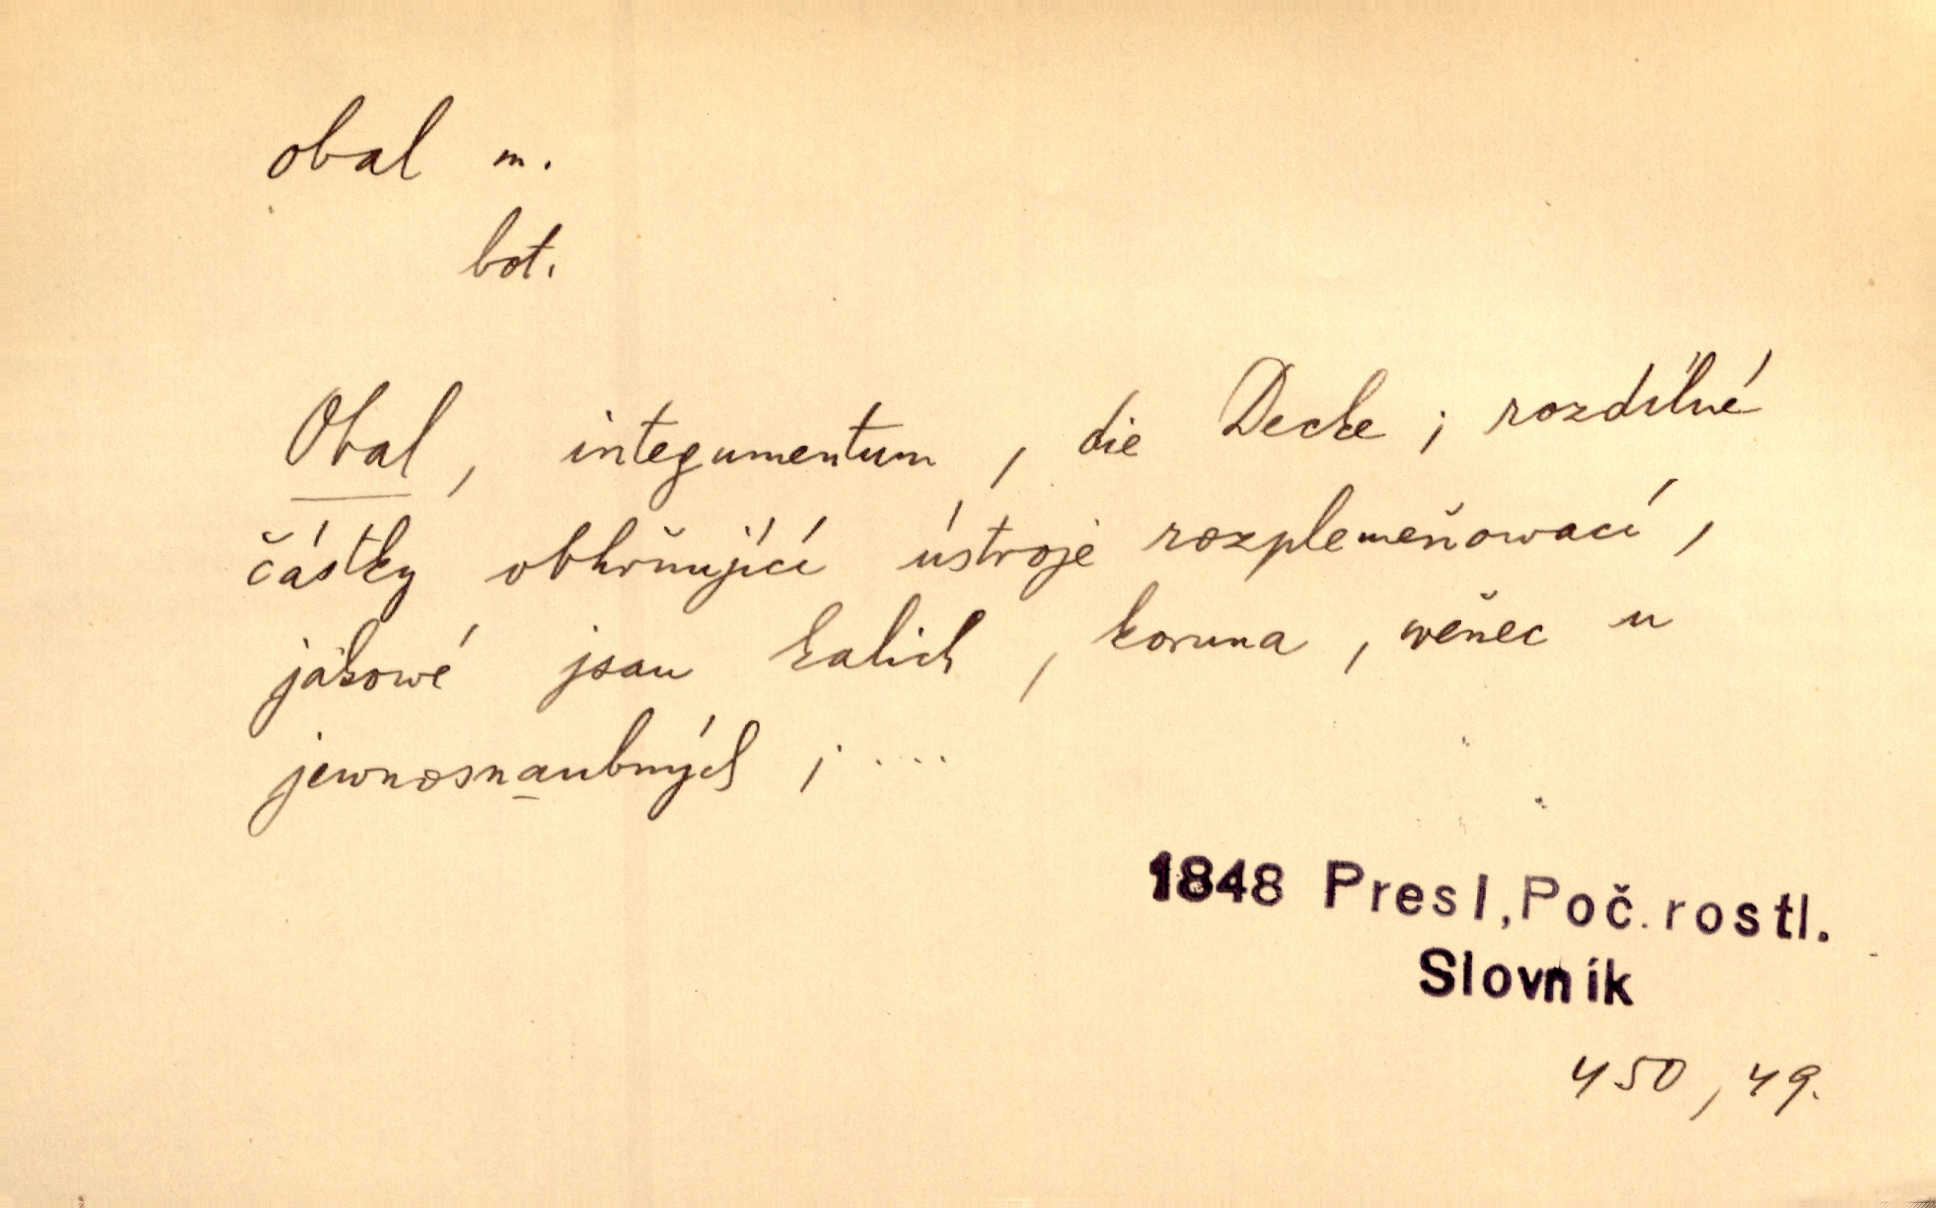 obal m.
bot.
Obal, integumentum, die Decke; rozdílné
částky obhrňující ústroje rozplemeňowací,
jakowé jsau kalich, koruna, wěnec u
jewnosnaubných; ....
1848 Presl, Poč. rostl.
Slovník
450, 49.